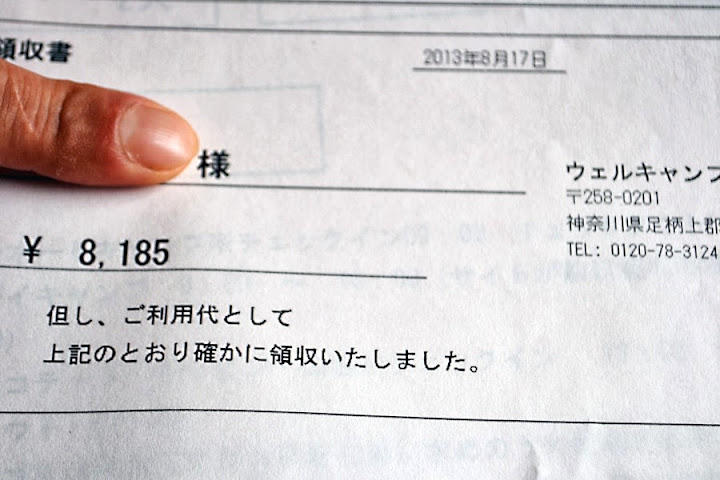 領収書
2013年8月17日
様
ウェルキャンプ
〒258-0201
神奈川県足柄上郡
TEL: 0120-78-3124
¥ 8,185
但し、ご利用代として
上記のとおり確かに領収いたしました。